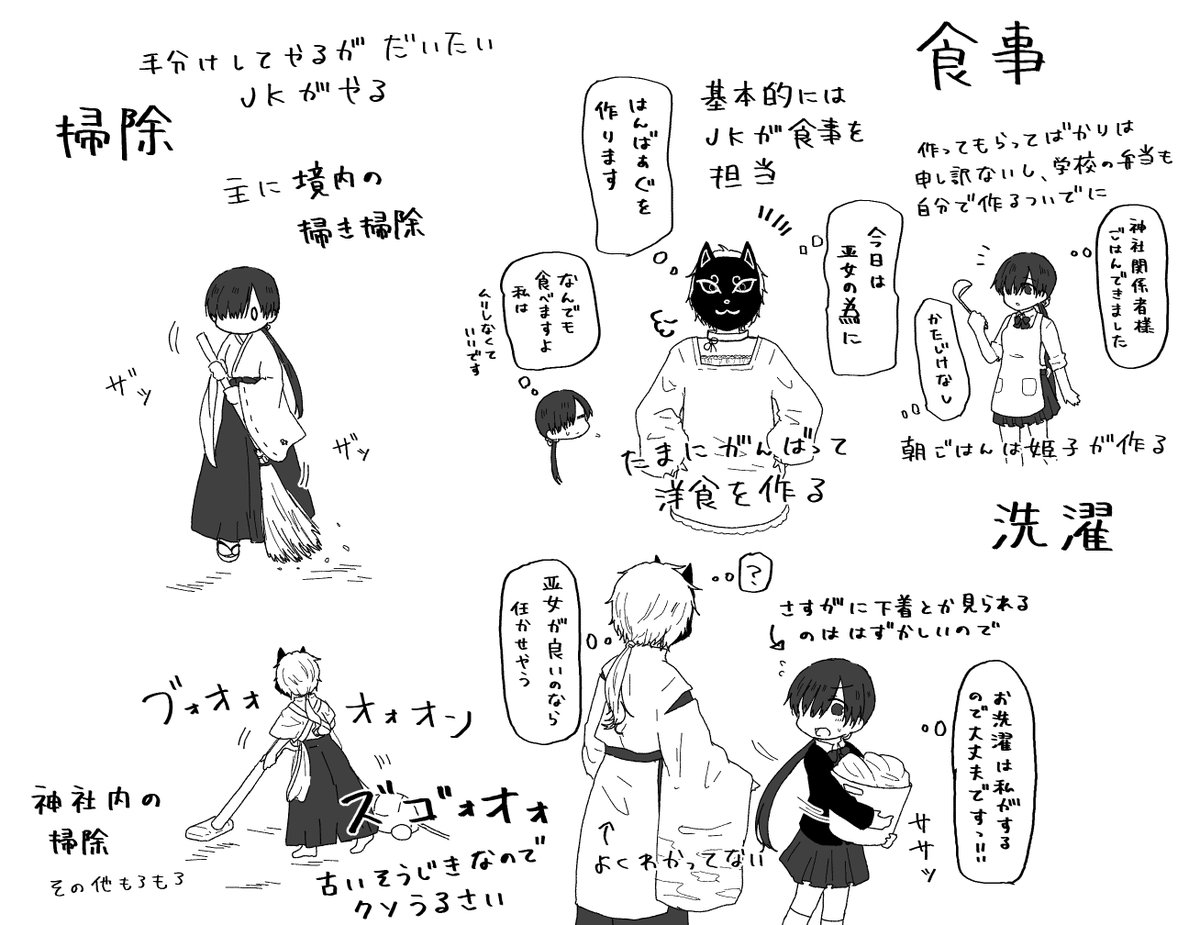 手分けしてやるが だいたい
JKがやる
掃除
主に境内の
掃き掃除
ザッ
ザッ
食事
基本的には
JKが食事を
担当
作ってもらってばかりは
申し訳ないし、学校の弁当も
自分で作るついでに
神社関係者様
ごはんできました
かたじけなし
朝ごはんは姫子が作る
今日は
巫女の為に
はんばあぐを
作ります
なんでも
食べますよ
私は
ムリしなくて
いいです
たまにがんばって
洋食を作る
洗濯
さすがに下着とか見られる
のははずかしいので
お洗濯は私がする
ので大丈夫ですっ!!!
ササッ
?
巫女が良いのなら
任かせやう
↑
よくわかってない
ブォオォ
オォオン
ズゴォオォ
神社内の
掃除
その他もろもろ
古いそうじきなので
クソうるさい